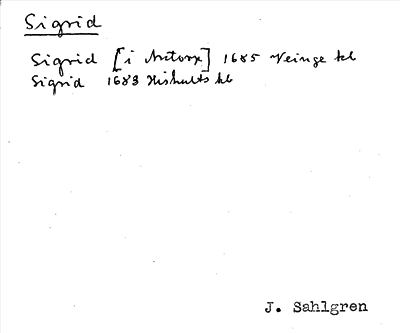 Sigrid
Sigrid [i Antorx] 1685 Veinge kb
Sigrid 1683 Hishults kb
J. Sahlgren